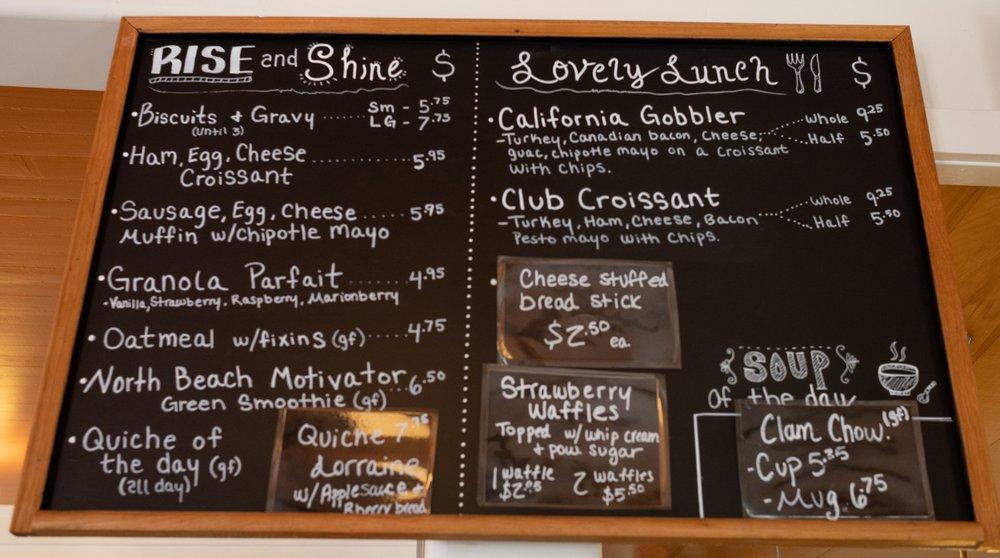 RISE and Shine $
•Biscuits & Gravy ...... Sm - 5.75
(until 3) LG - 7.75
•Ham, Egg, Cheese ............ 5.95
Croissant
•Sausage, Egg, Cheese ..... 5.95
Muffin w/chipotle mayo
•Granola Parfait ....... 4.95
-Vanilla, Strawberry, Raspberry, Marionberry
•Oatmeal w/fixins (gf) ..... 4.75
•North Beach Motivator .. 6.50
Green Smoothie (gf)
•Quiche of
the day (gf)
(all day)
Quiche
Lorraine
w/Applesauce +
bread
Lovely Lunch $
•California Gobbler Whole 9.25
-Turkey, Canadian bacon, Cheese, Half 5.50
guac, chipotle mayo on a croissant
with chips.
•Club Croissant Whole 9.25
-Turkey, Ham, Cheese, Bacon Half 5.50
Pesto mayo with chips.
• Cheese stuffed
bread stick
$2.50 ea.
Strawberry
Waffles
Topped w/ whip cream
+ pow. sugar
1 waffle 2 waffles
$5.50
SOUP
Of the day
Clam Chow. (gf)
-Cup
-Mug 6.75